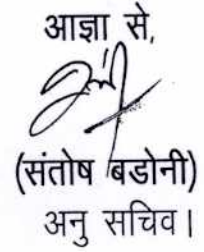 आज्ञा से,
(संतोष बडोनी)
अनु सचिव।